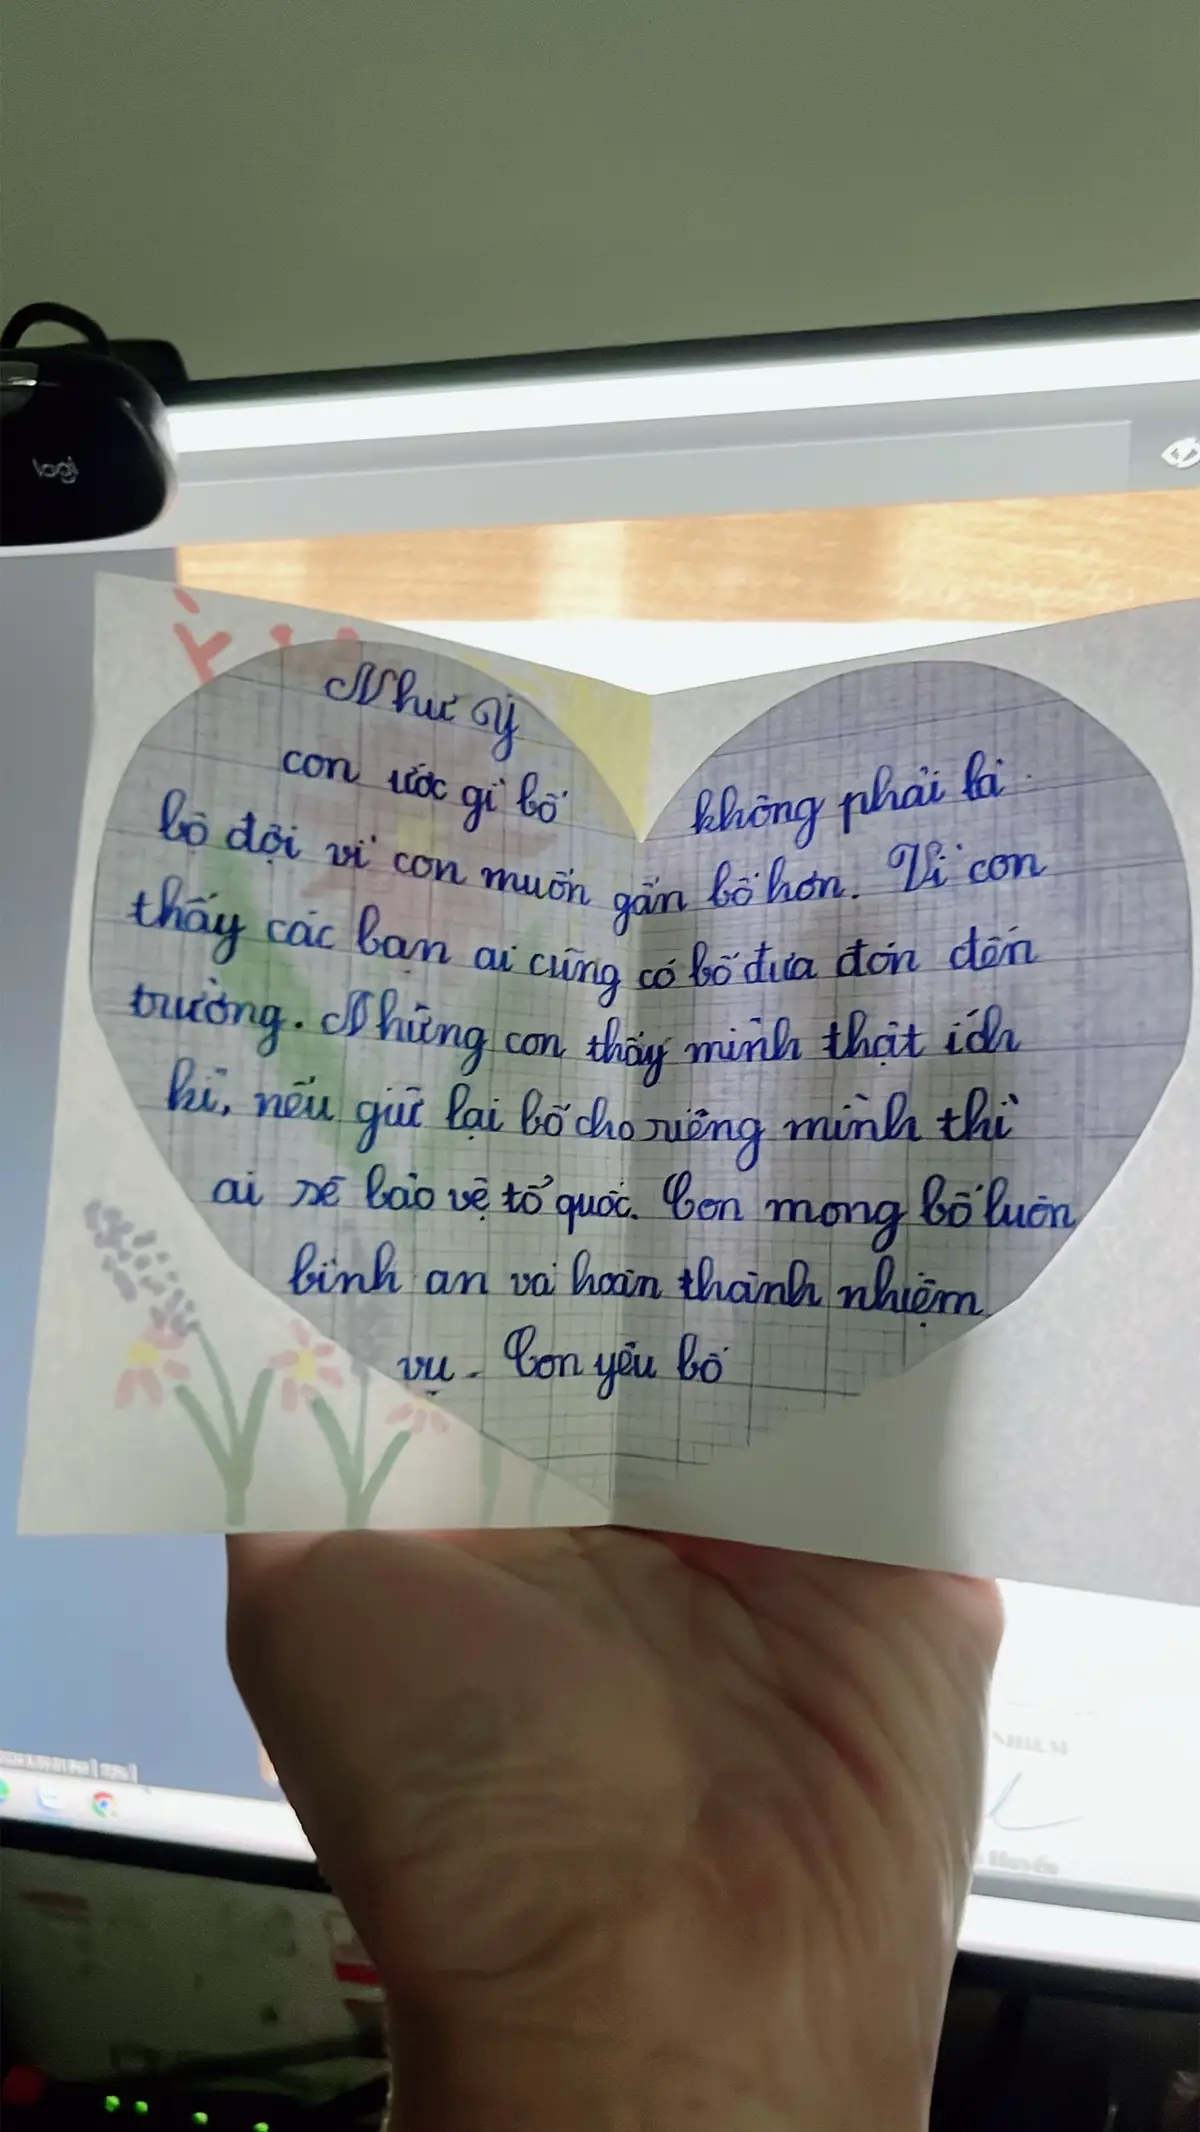 logi
Như Ý
con ước gì bố không phải là
bộ đội vì con muốn gần bố hơn. Vì con
thấy các bạn ai cũng có bố đưa đón đến
trường. Nhưng con thấy mình thật ích
kỉ, nếu giữ lại bố cho riêng mình thì
ai sẽ bảo vệ tổ quốc. Con mong bố luôn
bình an và hoàn thành nhiệm
vụ. Con yêu bố